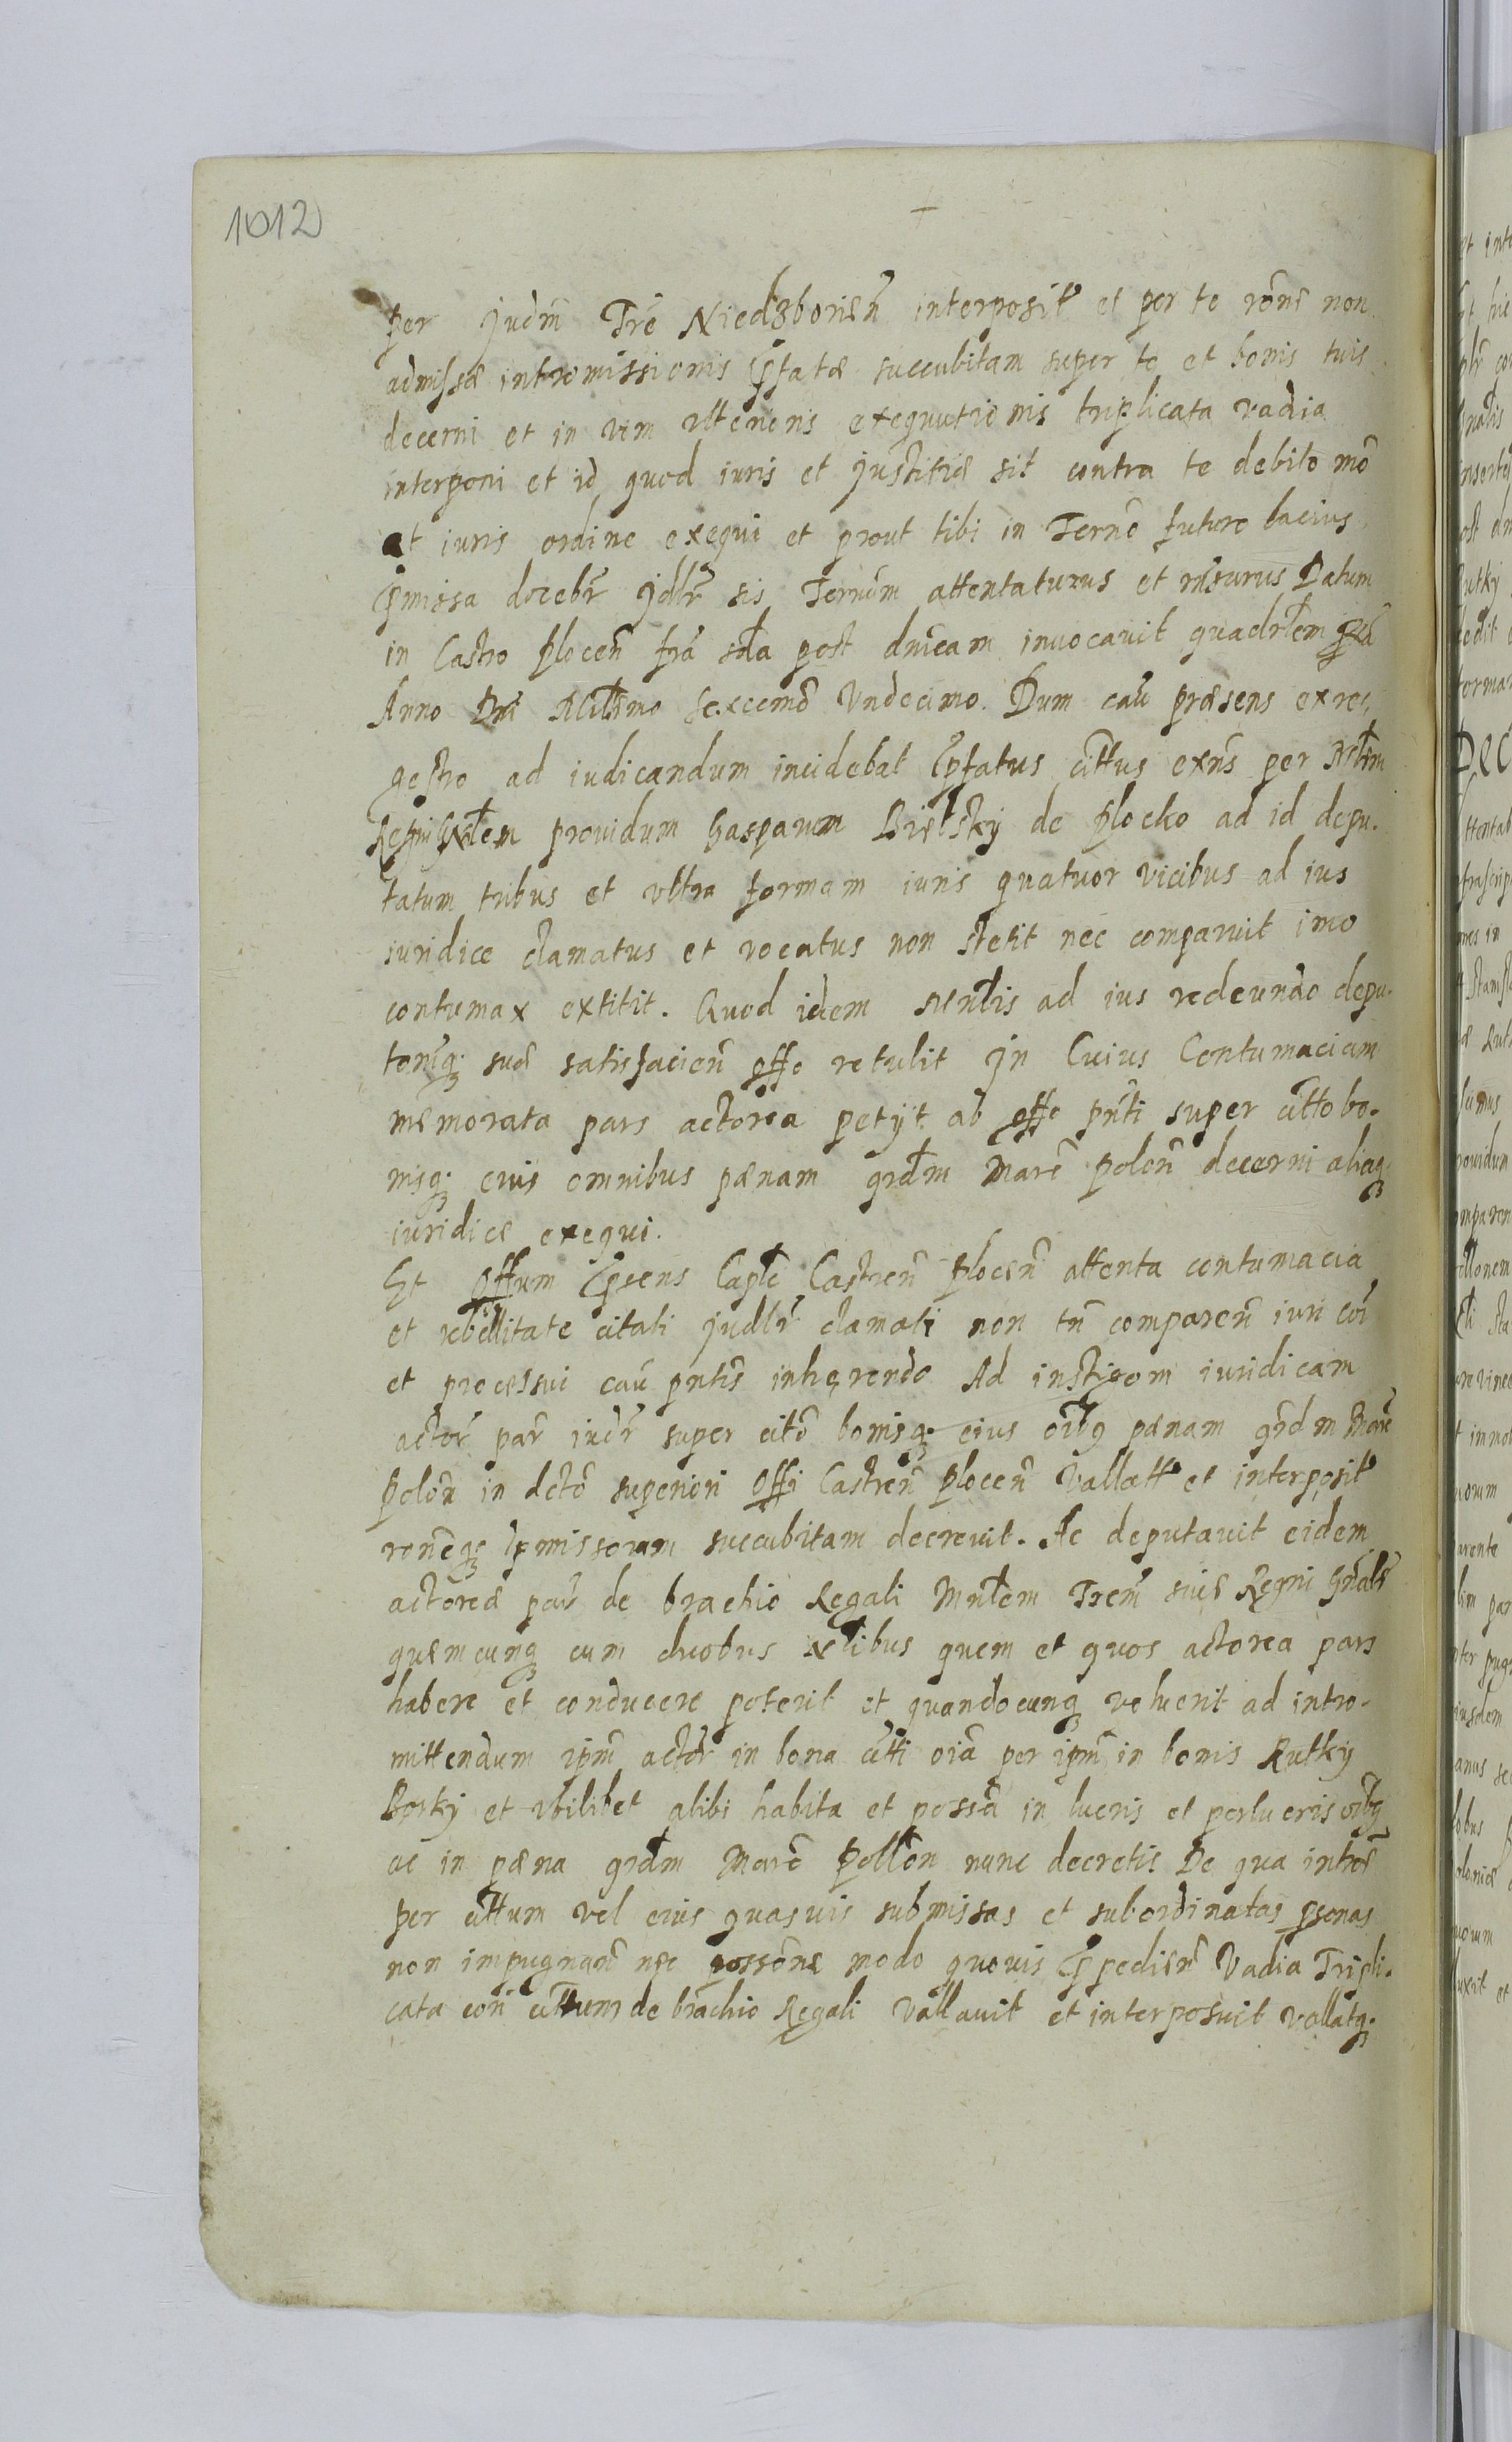 1012
per Judm Tre Niedzborien interposit et per te rone non
admissæ intromissionis pfatæ succubitam super te et bonis tuis
decerni et in vim ulterioris exequutionis triplicata vadia
interponi et id quod iuris et justitiæ sit contra te debito mo
et iuris ordine exequi et prout tibi in Termo futuro lacius
pmissa docebr Jdlr sis Termum attentaturus et rnsurus Datum
in Castro Plocen fra 2da post dnicam invocavit quadrlem
Anno Dni Millmo Sexcemo Vndecimo. Dum cau præsens ex re,
gestro ad iudicandum incidebat pfatus cittus exns per Mrlem
Regni Gnlem providum Gasparum Bielsky de Plocko ad id depu.
tatum tribus et ultra formam iuris quatuor vicibus ad ius
iuridice clamatus et vocatus non stetit nec comparuit imo
contumax extitit. Quod idem Mnlis ad ius redeundo depu.
toniq; suæ satisfacien offo retulit In Cuius Contumaciam
memorata pars actorea petijt ab offo pnti super citto bo.
nisq; eius omnibus pænam grdm Marc polon decerni aliaq;
iuridicæ exequi.
Et Offum Ppsens Caple Castren Plocen attenta contumacia
et rebellitate citati judlr clamati non tn comparen iuri coi
et processui cau pntis inhęrendo Ad instigom iuridicam
actor par iudr super cito bonisq; eius oibq pænam grdm Marc
Polon in dcto superiori Offi Castren Plocen Vallatt et interposit
roneq; pmissorum succubitam decrevit. Ac deputavit eidem
actoreæ par de brachio Regali Mnlem Trem sive Regni Gnale
quemcunq cum duobus Nlibus quem et quos actorea pars
habere et conducere poterit et quandocunq voluerit ad intro-
mittendum ipm actor in bona citti oia per ipm in bonis Rutky
Borky et ubilibet alibi habita et possa in lucris et perlucris oibq
ac in pæna grdm Marc Pollon nunc decretis De qua introe
per cittum vel eius quasvis submissas et subordinatas psonas
non impugnan nec possone modo quovis Ppedien Vadia Tripli.
cata con cittum de brachio Regali Vallavit et interposuit vallatq;